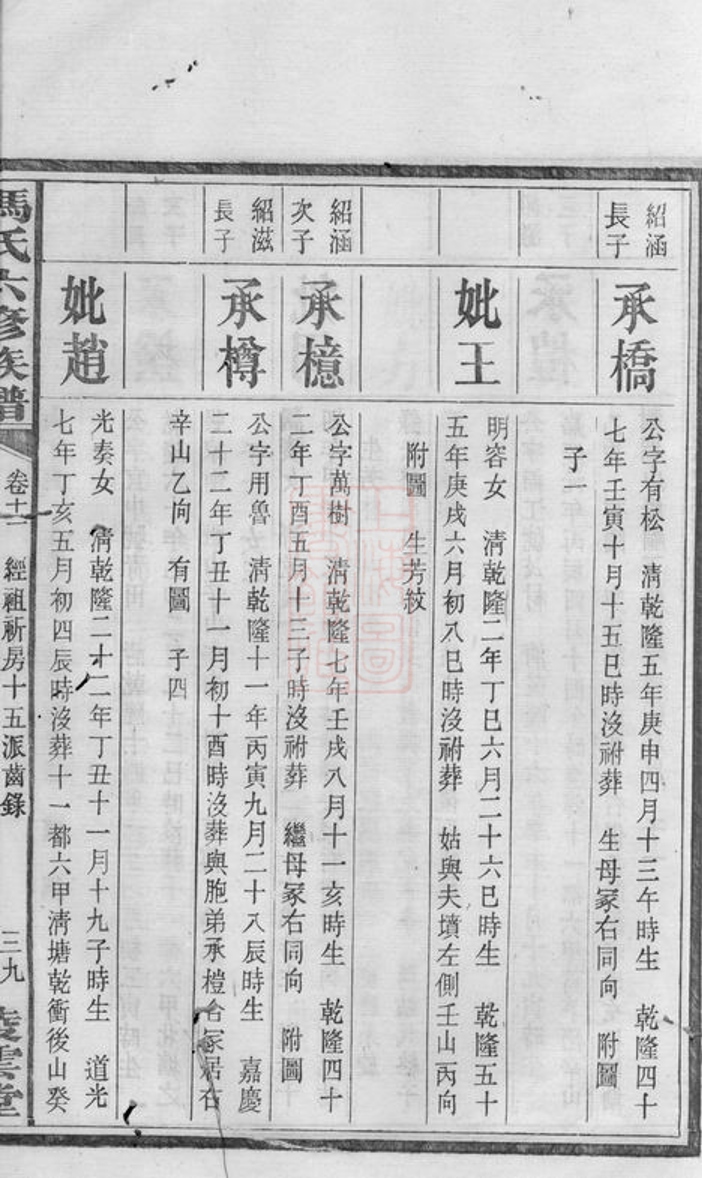 紹涵
長子
承橋
公字有松　清乾隆五年庚申四月十三午時生　乾隆四十
七年壬寅十月十五巳時沒祔葬　生母冢右同向　附圖
子一
妣王
明容女　清乾隆二年丁巳六月二十六巳時生　乾隆五十
五年庚戌六月初八巳時沒祔葬　姑與夫墳左側壬山丙向
附圖　生芳紋
紹涵
次子
承檍
公字萬樹　清乾隆七年壬戌八月十一亥時生　乾隆四十
二年丁酉五月十三子時沒祔葬　繼母冢右同向　附圖
紹滋
長子
承樽
公字用魯　清乾隆十一年丙寅九月二十八辰時生　嘉慶
二十二年丁丑十一月初十酉時沒葬與胞弟承橙合冢居右
辛山乙向　有圖　子四
妣趙
光奏女　清乾隆二十二年丁丑十一月十九子時生　道光
七年丁亥五月初四辰時沒葬十一都六甲清塘乾衝後山癸
馬氏六修族譜
卷十一　經祖祈房十五派齒錄
三九　凌雲堂